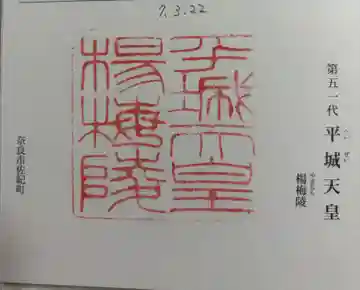 7.3.22
第五一代 平城天皇
へいぜい
楊梅陵
やまもも
平城天皇
楊梅陵
奈良市佐紀町